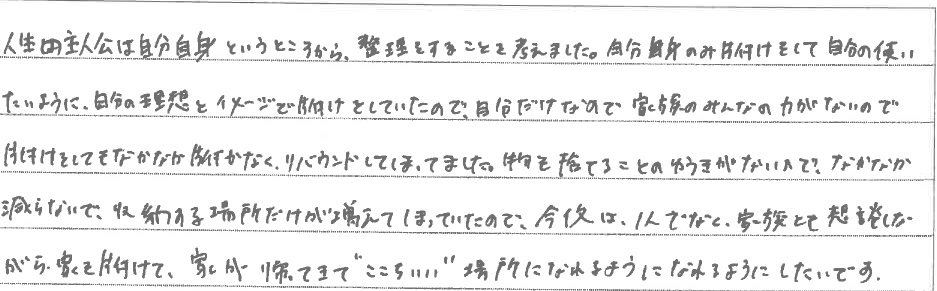 人生の主人公は自分自身というところから、整理をすることを考えました。自分自身のみ片付けをして自分の使い
たいように、自分の理想とイメージで片付けをしていたので、自分だけなので家族のみんなの力がないので
片付けをしてもなかなか片付かなく、リバウンドしてしまってました。物を捨てることのゆうきがないので、なかなか
減らないで、収納する場所だけが増えてしまっていたので、今後は、1人でなく、家族とも想談しな
がら、家を片付けて、家が帰ってきて"ここちいい"場所になれるようになれるようにしたいです。